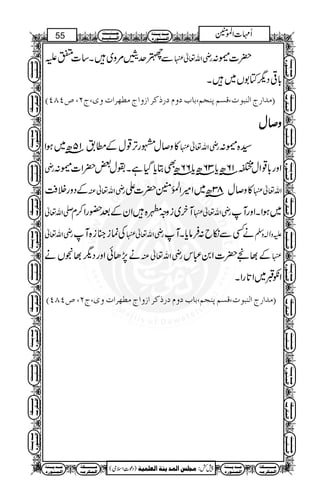 55
اُمہات المؤمنین
حضرت میمونہ رضی اللہ تعالیٰ عنہا سے چھہتر حدیثیں مروی ہیں۔ سات متفق علیہ
باقی دیگر کتابوں میں ہیں۔
(مدارج النبوت،قسم پنجم،باب دوم درذکر ازواج مطہرات وی،ج۲،ص۴۸۴)
وصال
سیدہ میمونہ رضی اللہ تعالیٰ عنہا کا وصال مشہور تر قول کے مطابق ۵۱ھ میں ہوا
اور باقوال مختلفہ ۶۱ھ یا ۶۳ھ یا ۶۶ھ بھی بتایا گیا ہے۔ بقول بعض حضرات میمونہ رضی
اللہ تعالیٰ عنہا کا وصال ۳۸ھ میں امیر المؤمنین حضرت علی رضی اللہ تعالیٰ عنہ کے دور خلافت
میں ہوا۔ اور آپ رضی اللہ تعالیٰ عنہا آخری زوجہ مطہرہ ہیں ان کے بعد حضور اکرم صلی اللہ تعالیٰ
علیہ واٰلہ وسلم نے کسی سے نکاح نہ فرمایا۔ آپ رضی اللہ تعالیٰ عنہا کی نماز جنازہ آپ رضی اللہ تعالیٰ
عنہا کے بھانجے حضرت ابن عباس رضی اللہ تعالیٰ عنہ نے پڑھائی اور دیگر بھانجوں نے
انکو قبر میں اتارا۔
(مدارج النبوت،قسم پنجم،باب دوم درذکر ازواج مطہرات وی،ج۲،ص۴۸۴)
پیش کش: مجلس المدينة العلمية (دعوت اسلامی)